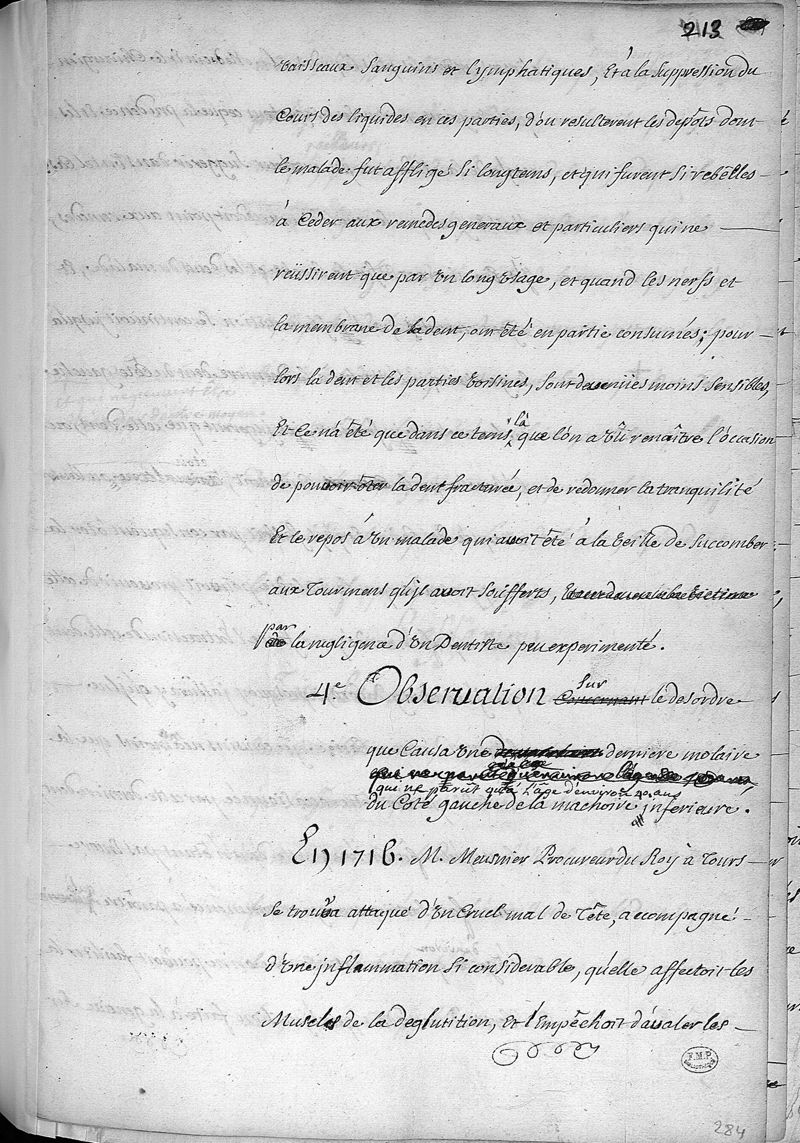 213
vaisseaux sanguins et lymphatiques, Et à la suppression du
Cours des liquides en ces parties, d'ou resulterent les depôts dont
le malade fut affligé si longtems, et qui furent si rebelles
à Ceder aux remedes generaux et particuliers qui ne
reüssirent que par un long usage, et quand les nerfs et
la membrane de la dent, ont été en partie consumés; pour
lors la dent et les parties voisines, sont devenües moins sensibles,
Et ce n'a été que dans ce tems là que l'on a vû renaître l'occasion
de pouvoir ôter la dent fracturée, et de redonner la tranquilité
Et le repos à un malade qui avoit été à la veille de succomber
aux Tourmens qu'il avoit soufferts,
par la negligence d'un Dentiste peu experimenté.
4.e Observation Concernant sur le desordre
que Causa une derniere molaire
qui ne parut qu'à l'âge d'environ 40. ans
du Coté gauche de la machoire inferieure.
En 1716. M. Meusnier Procureur du Roy à Tours
se trouva attaqué d'un Cruel mal de Tête, acompagné
d'une inflammation si considerable, qu'elle affectoit les
Muscles de la deglutition, et l'Empêchoit d'avaler les
F.M.P.
284